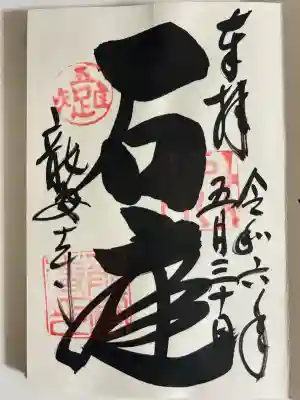 奉拝
令和六年
五月三十日
石庭
吾唯足知
龍安寺